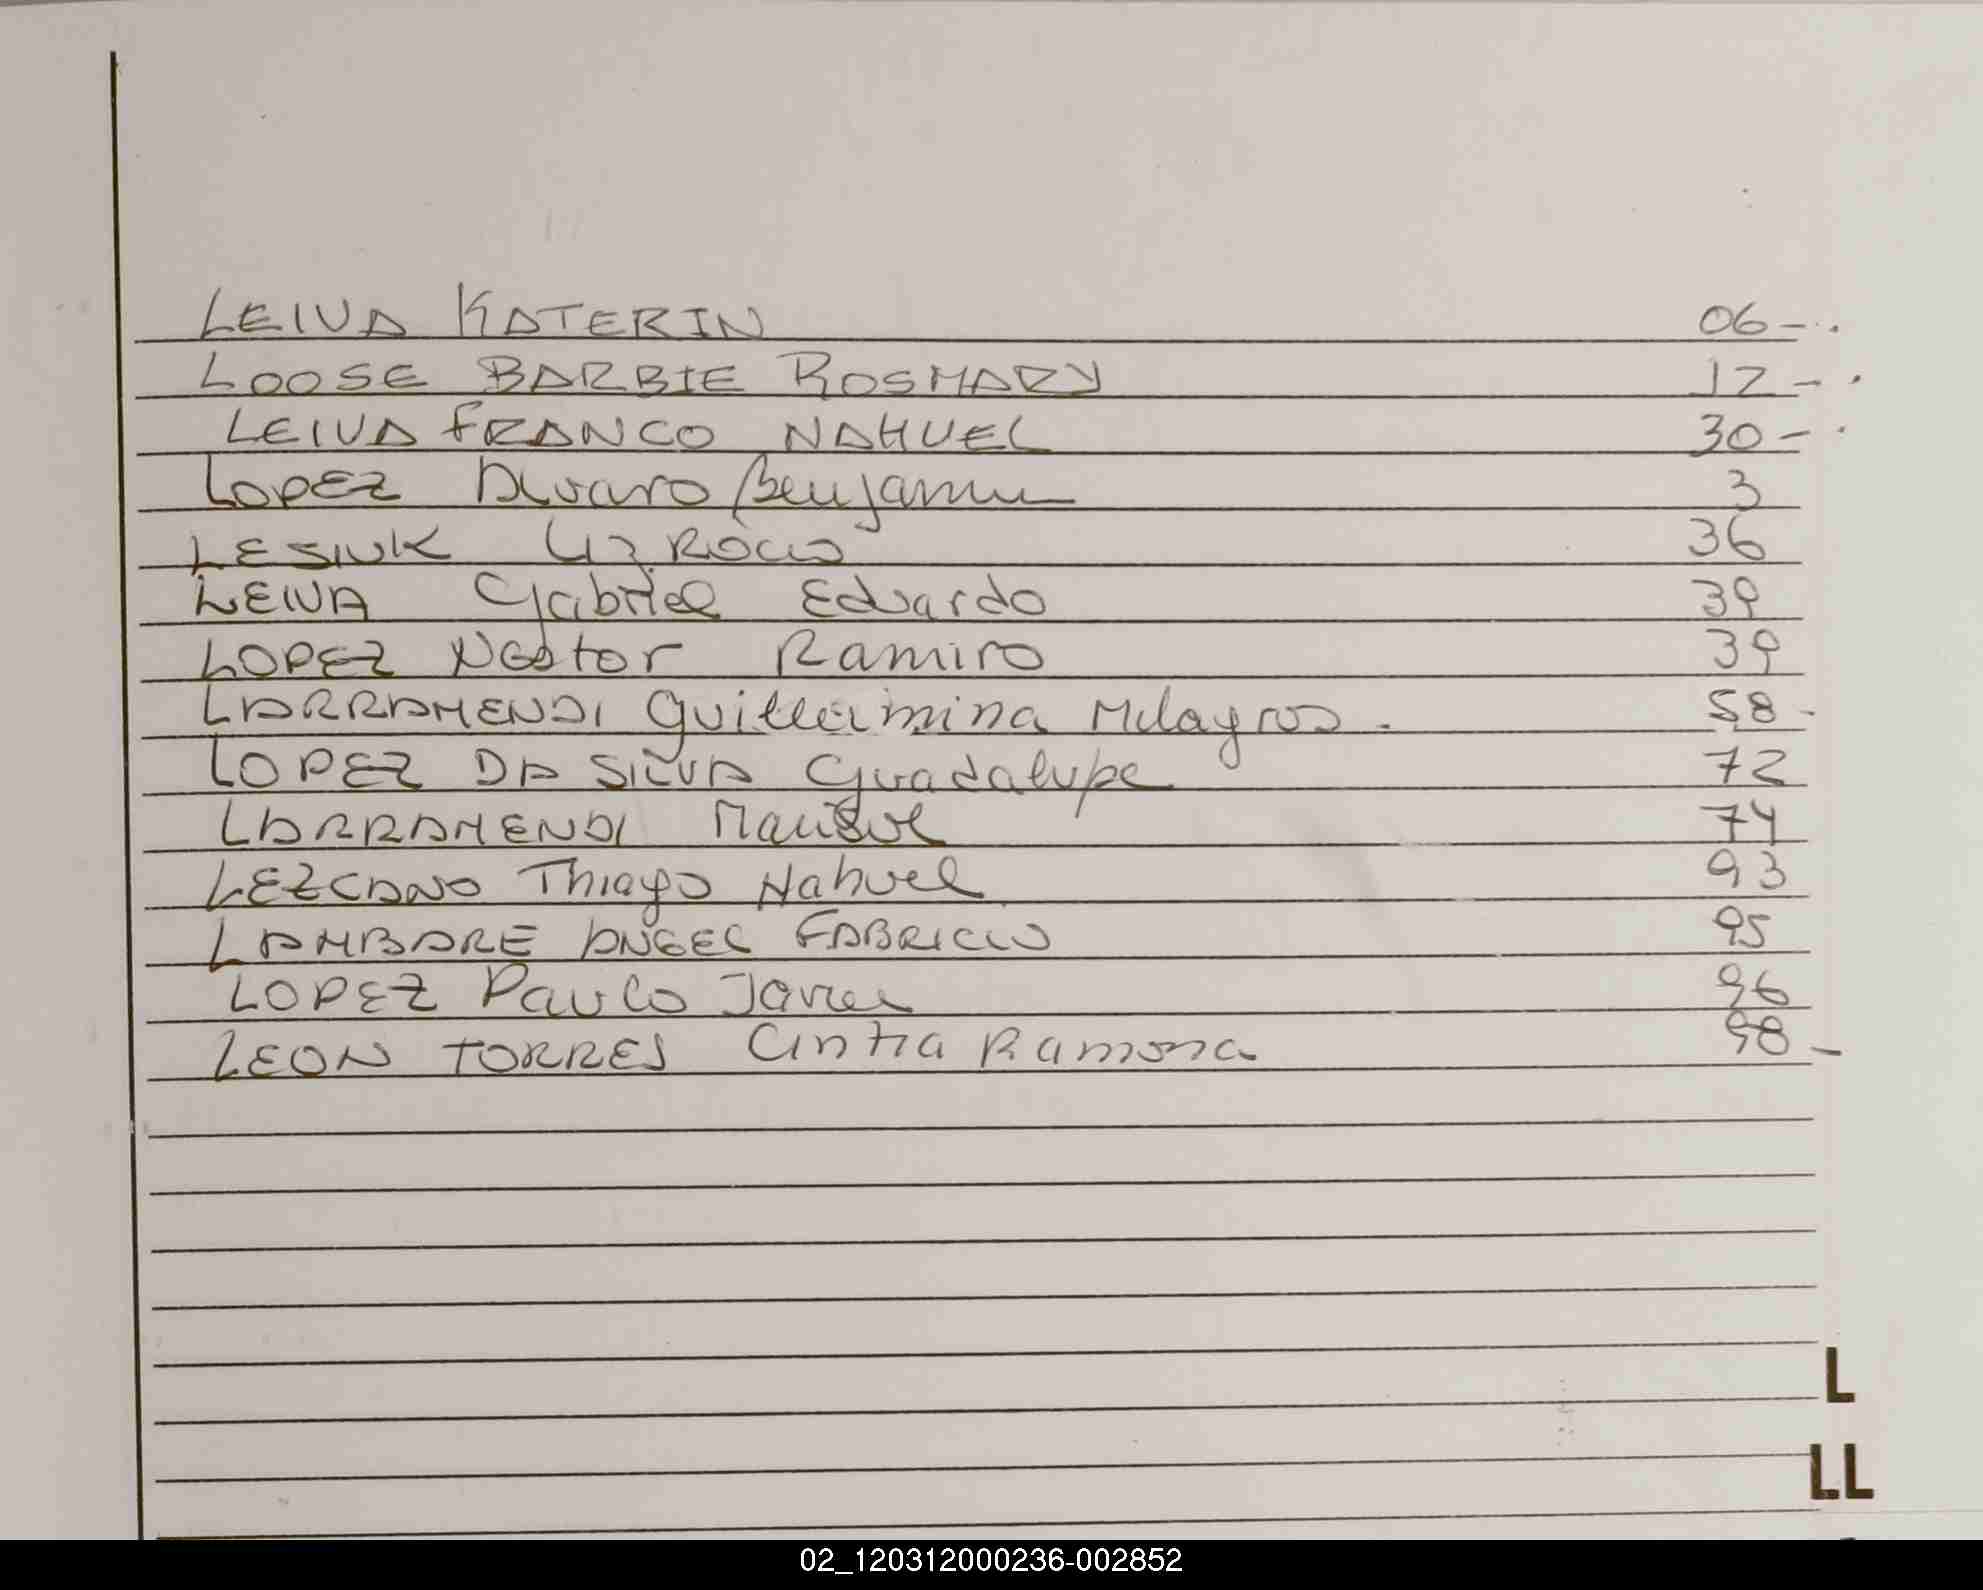 LEIVA KATERIN 06-.
LOOSE BARBIE ROSMARY 12-.
LEIVA FRANCO NAHUEL 30-.
LOPEZ Alvaro Benjamin 3
LESIUK LIZ ROCIO 36
LEIVA Gabriel Eduardo 39
LOPEZ Nestor Ramiro 39
LARRAMENDI Guillermina Milagros. 58-
LOPEZ DA SILVA Guadalupe 72
LARRAMENDI Manuel 74
LEZCANO Thiago Nahuel 93
LAMBARE ANGEL FABRICIO 95
LOPEZ Paulo Javier 96
LEON TORRES Cintia Ramona 98-
L
LL
02_120312000236-002852